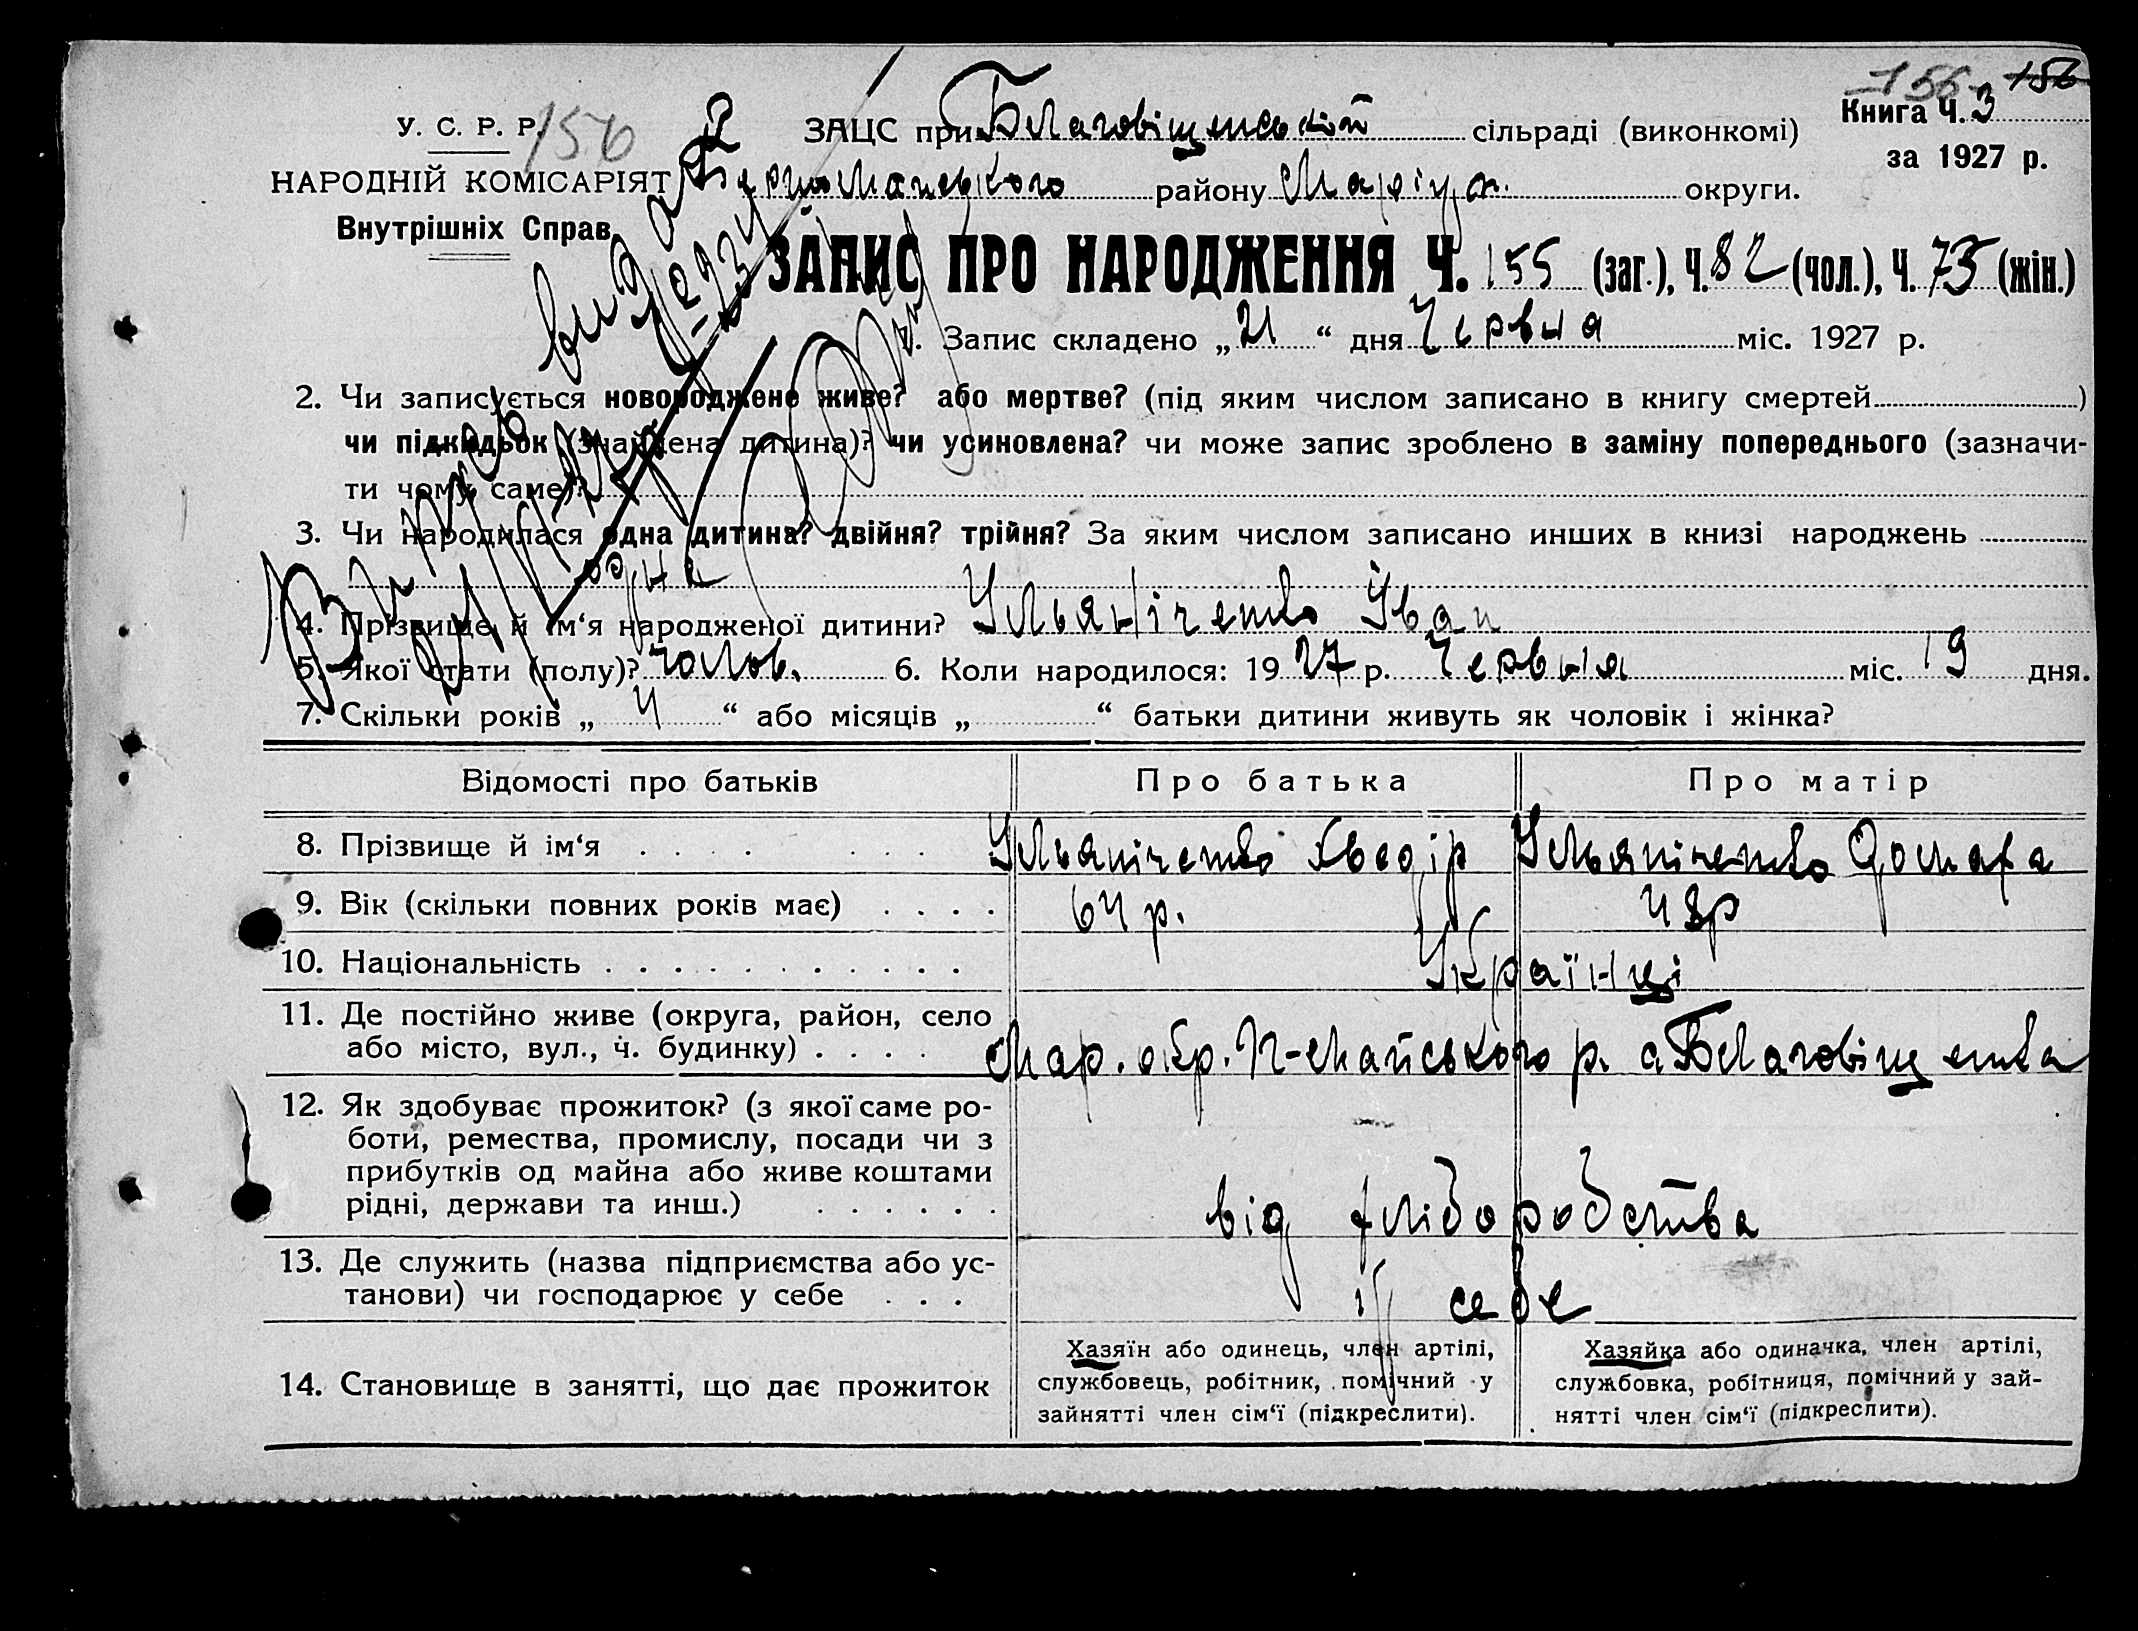 155 156
У. С. Р. Р. 156 ЗАЦС при Благовіщенській сільраді (виконкомі) Книга Ч. 3
за 1927 р.
НАРОДНІЙ КОМІСАРІЯТ Першомайського району Маріуп. округи.
Внутрішніх Справ
ЗАПИС ПРО НАРОДЖЕННЯ Ч. 155 (заг.), Ч. 82 (чол.), Ч. 73 (жін.)
1. Запис складено „21“ дня Червня міс. 1927 р.
2. Чи записується новороджене живе? або мертве? (під яким числом записано в книгу смертей )
чи підкидьок (знайдена дитина)? чи усиновлена? чи може запис зроблено в заміну попереднього (зазначи-
ти чому саме)?
3. Чи народилася одна дитина? двійня? трійня? За яким числом записано инших в книзі народжень
одна
4. Прізвище й ім‘я народженої дитини? Ульяніченко Іван
5. Якої стати (полу)? чолов. 6. Коли народилося: 1927 р. Червня міс. 19 дня.
7. Скільки років „ 4 “ або місяців „ “ батьки дитини живуть як чоловік і жінка?
Відомості про батьків Про батька Про матір
8. Прізвище й ім‘я Ульяніченко Хведір Ульяніченко Домаха
9. Вік (скільки повних років має) 64 р. 43р
10. Національність Українці
11. Де постійно живе (округа, район, село
або місто, вул., ч. будинку) Мар. окр. П-Майського р. с Благовіщенка
12. Як здобуває прожиток? (з якої саме ро-
боти, ремества, промислу, посади чи з
прибутків од майна або живе коштами
рідні, держави та инш.) від хліборобства
13. Де служить (назва підприємства або ус-
танови) чи господарює у себе у себе
14. Становище в занятті, що дає прожиток
Хазяїн або одинець, член артілі,
службовець, робітник, помічний у
зайнятті член сім‘ї (підкреслити).
Хазяйка або одиначка, член артілі,
службовка, робітниця, помічний у зай-
нятті член сім‘ї (підкреслити).